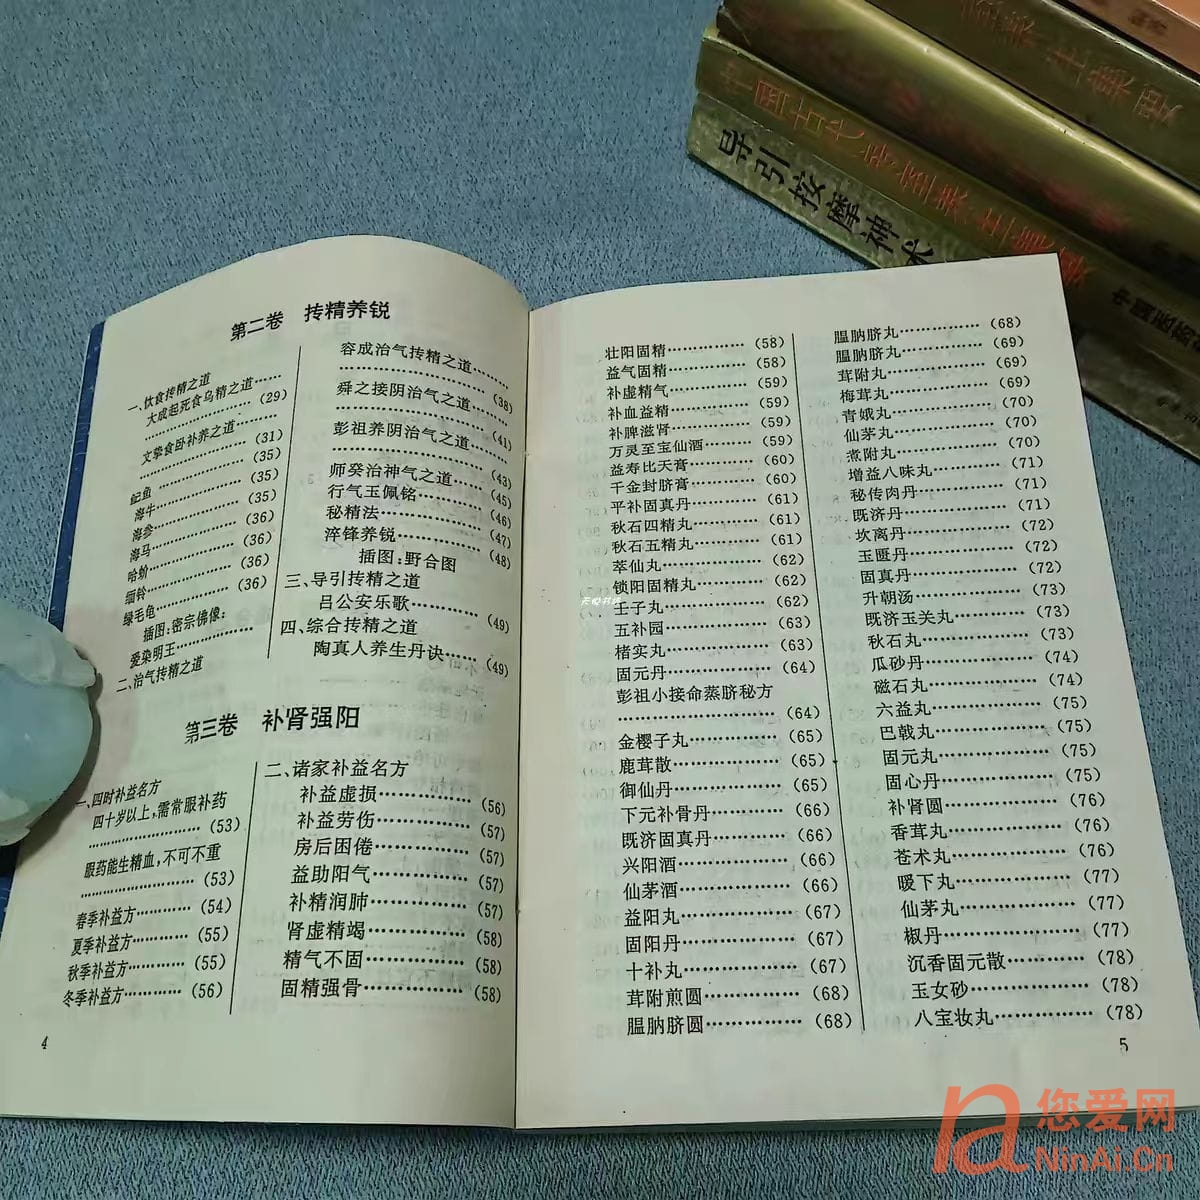 第二卷 抟精养锐
一、饮食抟精之道
大成起死食鸟精之道……
……………………(29)
文挚食卧补养之道……
……………………(31)
鮀鱼……………………(35)
海牛……………………(35)
海参……………………(35)
海马……………………(36)
哈蚧……………………(36)
缅铃……………………(36)
绿毛龟…………………(36)
插图:密宗佛像:
爱染明王……………
二、治气抟精之道
容成治气抟精之道………
……………………(38)
舜之接阴治气之道………
……………………(41)
彭祖养阴治气之道………
……………………(43)
师癸治神气之道………(45)
行气玉佩铭……………(46)
秘精法…………………(47)
淬锋养锐………………(48)
插图:野合图
三、导引抟精之道
吕公安乐歌……………(49)
四、综合抟精之道
陶真人养生丹诀………(49)
第三卷 补肾强阳
一、四时补益名方
四十岁以上,需常服补药
……………………(53)
服药能生精血,不可不重
……………………(53)
春季补益方…………(54)
夏季补益方…………(55)
秋季补益方…………(55)
冬季补益方…………(56)
二、诸家补益名方
补益虚损……………(56)
补益劳伤……………(57)
房后困倦……………(57)
益助阳气……………(57)
补精润肺……………(57)
肾虚精竭……………(58)
精气不固……………(58)
固精强骨……………(58)
4
壮阳固精……………(58)
益气固精……………(58)
补虚精气……………(59)
补血益精……………(59)
补脾滋肾……………(59)
万灵至宝仙酒………(59)
益寿比天膏…………(60)
千金封脐膏…………(60)
平补固真丹…………(61)
秋石四精丸…………(61)
秋石五精丸…………(61)
萃仙丸………………(62)
锁阳固精丸…………(62)
壬子丸………………(62)
五补园………………(63)
楮实丸………………(63)
固元丹………………(64)
彭祖小接命蒸脐秘方
……………………(64)
金樱子丸……………(65)
鹿茸散………………(65)
御仙丹………………(65)
下元补骨丹…………(66)
既济固真丹…………(66)
兴阳酒………………(66)
仙茅酒………………(66)
益阳丸………………(67)
固阳丹………………(67)
十补丸………………(67)
茸附煎圆……………(68)
腽肭脐圆……………(68)
腽肭脐丸……………(68)
腽肭脐丸……………(69)
茸附丸………………(69)
梅茸丸………………(69)
青娥丸………………(70)
仙茅丸………………(70)
煮附丸………………(70)
增益八味丸…………(71)
秘传肉丹……………(71)
既济丹………………(71)
坎离丹………………(72)
玉匮丹………………(72)
固真丹………………(72)
升朝汤………………(73)
既济玉关丸…………(73)
秋石丸………………(73)
瓜砂丹………………(74)
磁石丸………………(74)
六益丸………………(75)
巴戟丸………………(75)
固元丸………………(75)
固心丹………………(75)
补肾圆………………(76)
香茸丸………………(76)
苍术丸………………(76)
暖下丸………………(77)
仙茅丸………………(77)
椒丹…………………(77)
沉香固元散…………(78)
玉女砂………………(78)
八宝妆丸……………(78)
5
导引按摩神术
您爱网
NinAi.Cn